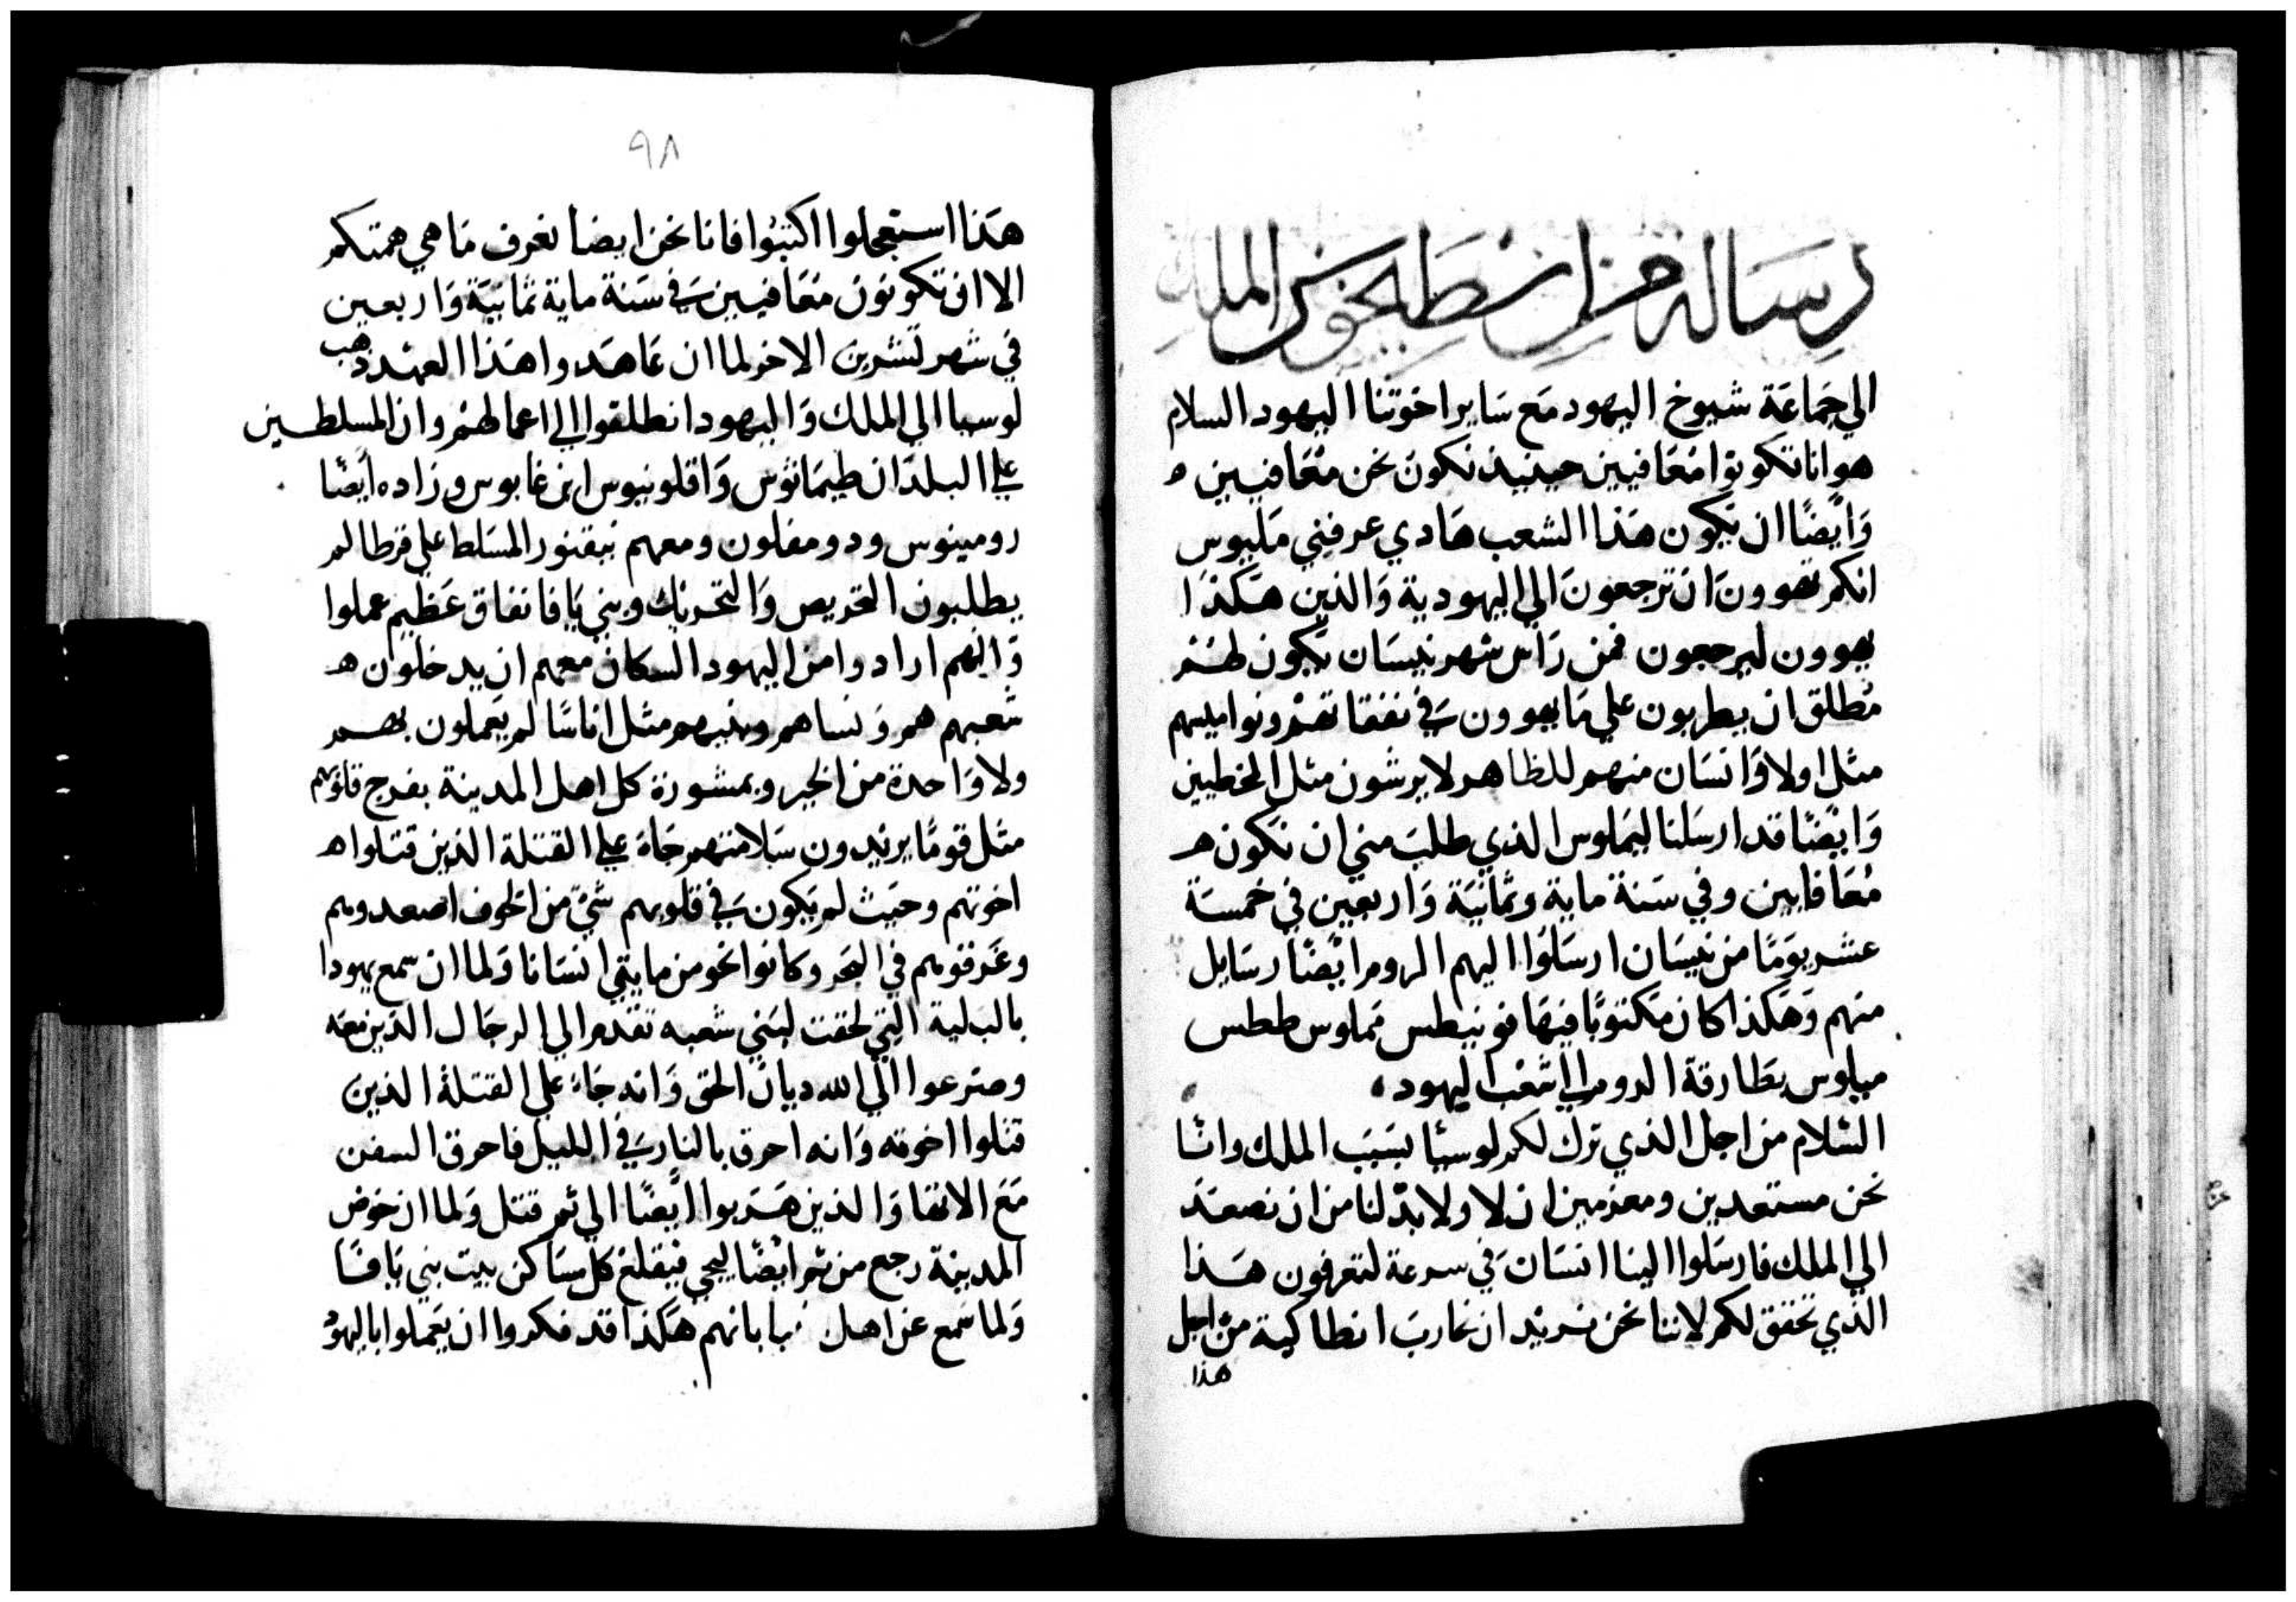 رسالة من انطيخوس الملك
الي جَماعَة شيوخ اليهود مَع سَاير اخوتنا اليهود السلام
هو انا تكونوا مُعَافيين حينيذ نكون نحن مُعَافيين ه
وَايضًا ان يكون هَذا الشعب هَادي عرفني مَلبوس
انكم تهوون اَن ترجعونَ الي اليهودية وَالذين هَكذا
يهوون ليرجعون فمن رَاس شهر نيسَان يكون لهُم
مُطلق ان يطربون علي مَا يهوون في نفقاتهُم ونواميسهم
مثل اولا وَانسَان منهم للظاهر لا يرشون مثل الخطيين
وَايضًا قد ارسَلنا ليمَلوس الذي طلبَ مني ان نكون هـ
مُعَافايين وفي سَنة ماية وثمانيَة وَاربعين في خمسَة
عشر يومًا من نيسَان ارسَلوا اليهم الروم ايضًا رسَايل
منهم وَهَكذا كان مَكتوبًا فيهَا فونيطس مَملوس ططس
ميلوس بطَارقة الروم الي شعْب اليهود ،
السّلام من اجل الذي ترك لكم لوسيا بسَبَب الملك وانّا
نحن مستعدين ومعزمين ان لا ولا بدّ لنا من ان نصعَد
الي الملك فارسَلوا الينا انسَان في سرعة لتعرفون هَذا
الذي تحقق لكم لاننا نحن نريد ان نحارب انطاكية من اجل
هذا
٩٨
هَذا استعجلوا اكتبُوا فانا نحن ايضا نعرف مَا هي همتكم
الا ان تكونون مُعَافيين في سَنة ماية ثمانيَة وَاربعين
في شهر تشرين الاخر لما ان عَاهَدوا هَذا العهْد ذهب
لوسيا الي الملك وَاليهود انطلقوا الي اعمالهُم وان المسلطين
علي البلدَان طيمَاثوس وَاقلونيوس ابن غابوس وزاده ايضًا
رومينوس ودومفلون ومعهم نيقنور المسَلط علي قرطالم
يطلبون التحريص وَالتحريك وبني يَافا نفاق عَظيم عملوا
وَانهم ارادوا من اليهود السكان معهم ان يدخلون هـ
شعبهم هم وَنساهم وبنيهم مثل اناسًا لم يَعملون بهم
ولا وَاحدة من الخير وبمشورة كل اهل المدينة بفرج قلوبهم
مثل قومًا يريدون سَلامتهم جَاءَ علي القتلة الذين قتلوا هـ
اخوتهم وحَيث لم يكون في قلوبهم شيّ من الخوف اصعدوهم
وغَرقوهم في البَحر وكانوا نحو من مايتي انسَانا وَلما ان سمع يهودا
بالبَلية التي لحقت لبَني شعبه تقدم الي الرجَال الذين معَه
وضرعوا الي الله ديان الحق وَانه جَاءَ علي القتلة الذين
قتلوا اخوته وَانه احرق بالنار في الليل فاحرق السفن
مَع الاتقا وَالذين هَربوا ايضًا الي ثم قتل وَلما ان خوض
المدينة رجع من ثم ايضًا ليجي فيقلع كل سَاكن بيت بني يَافَا
وَلما سَمع عن اهل بانهم هَكذا قد فكروا ان يَعملوا باليهود